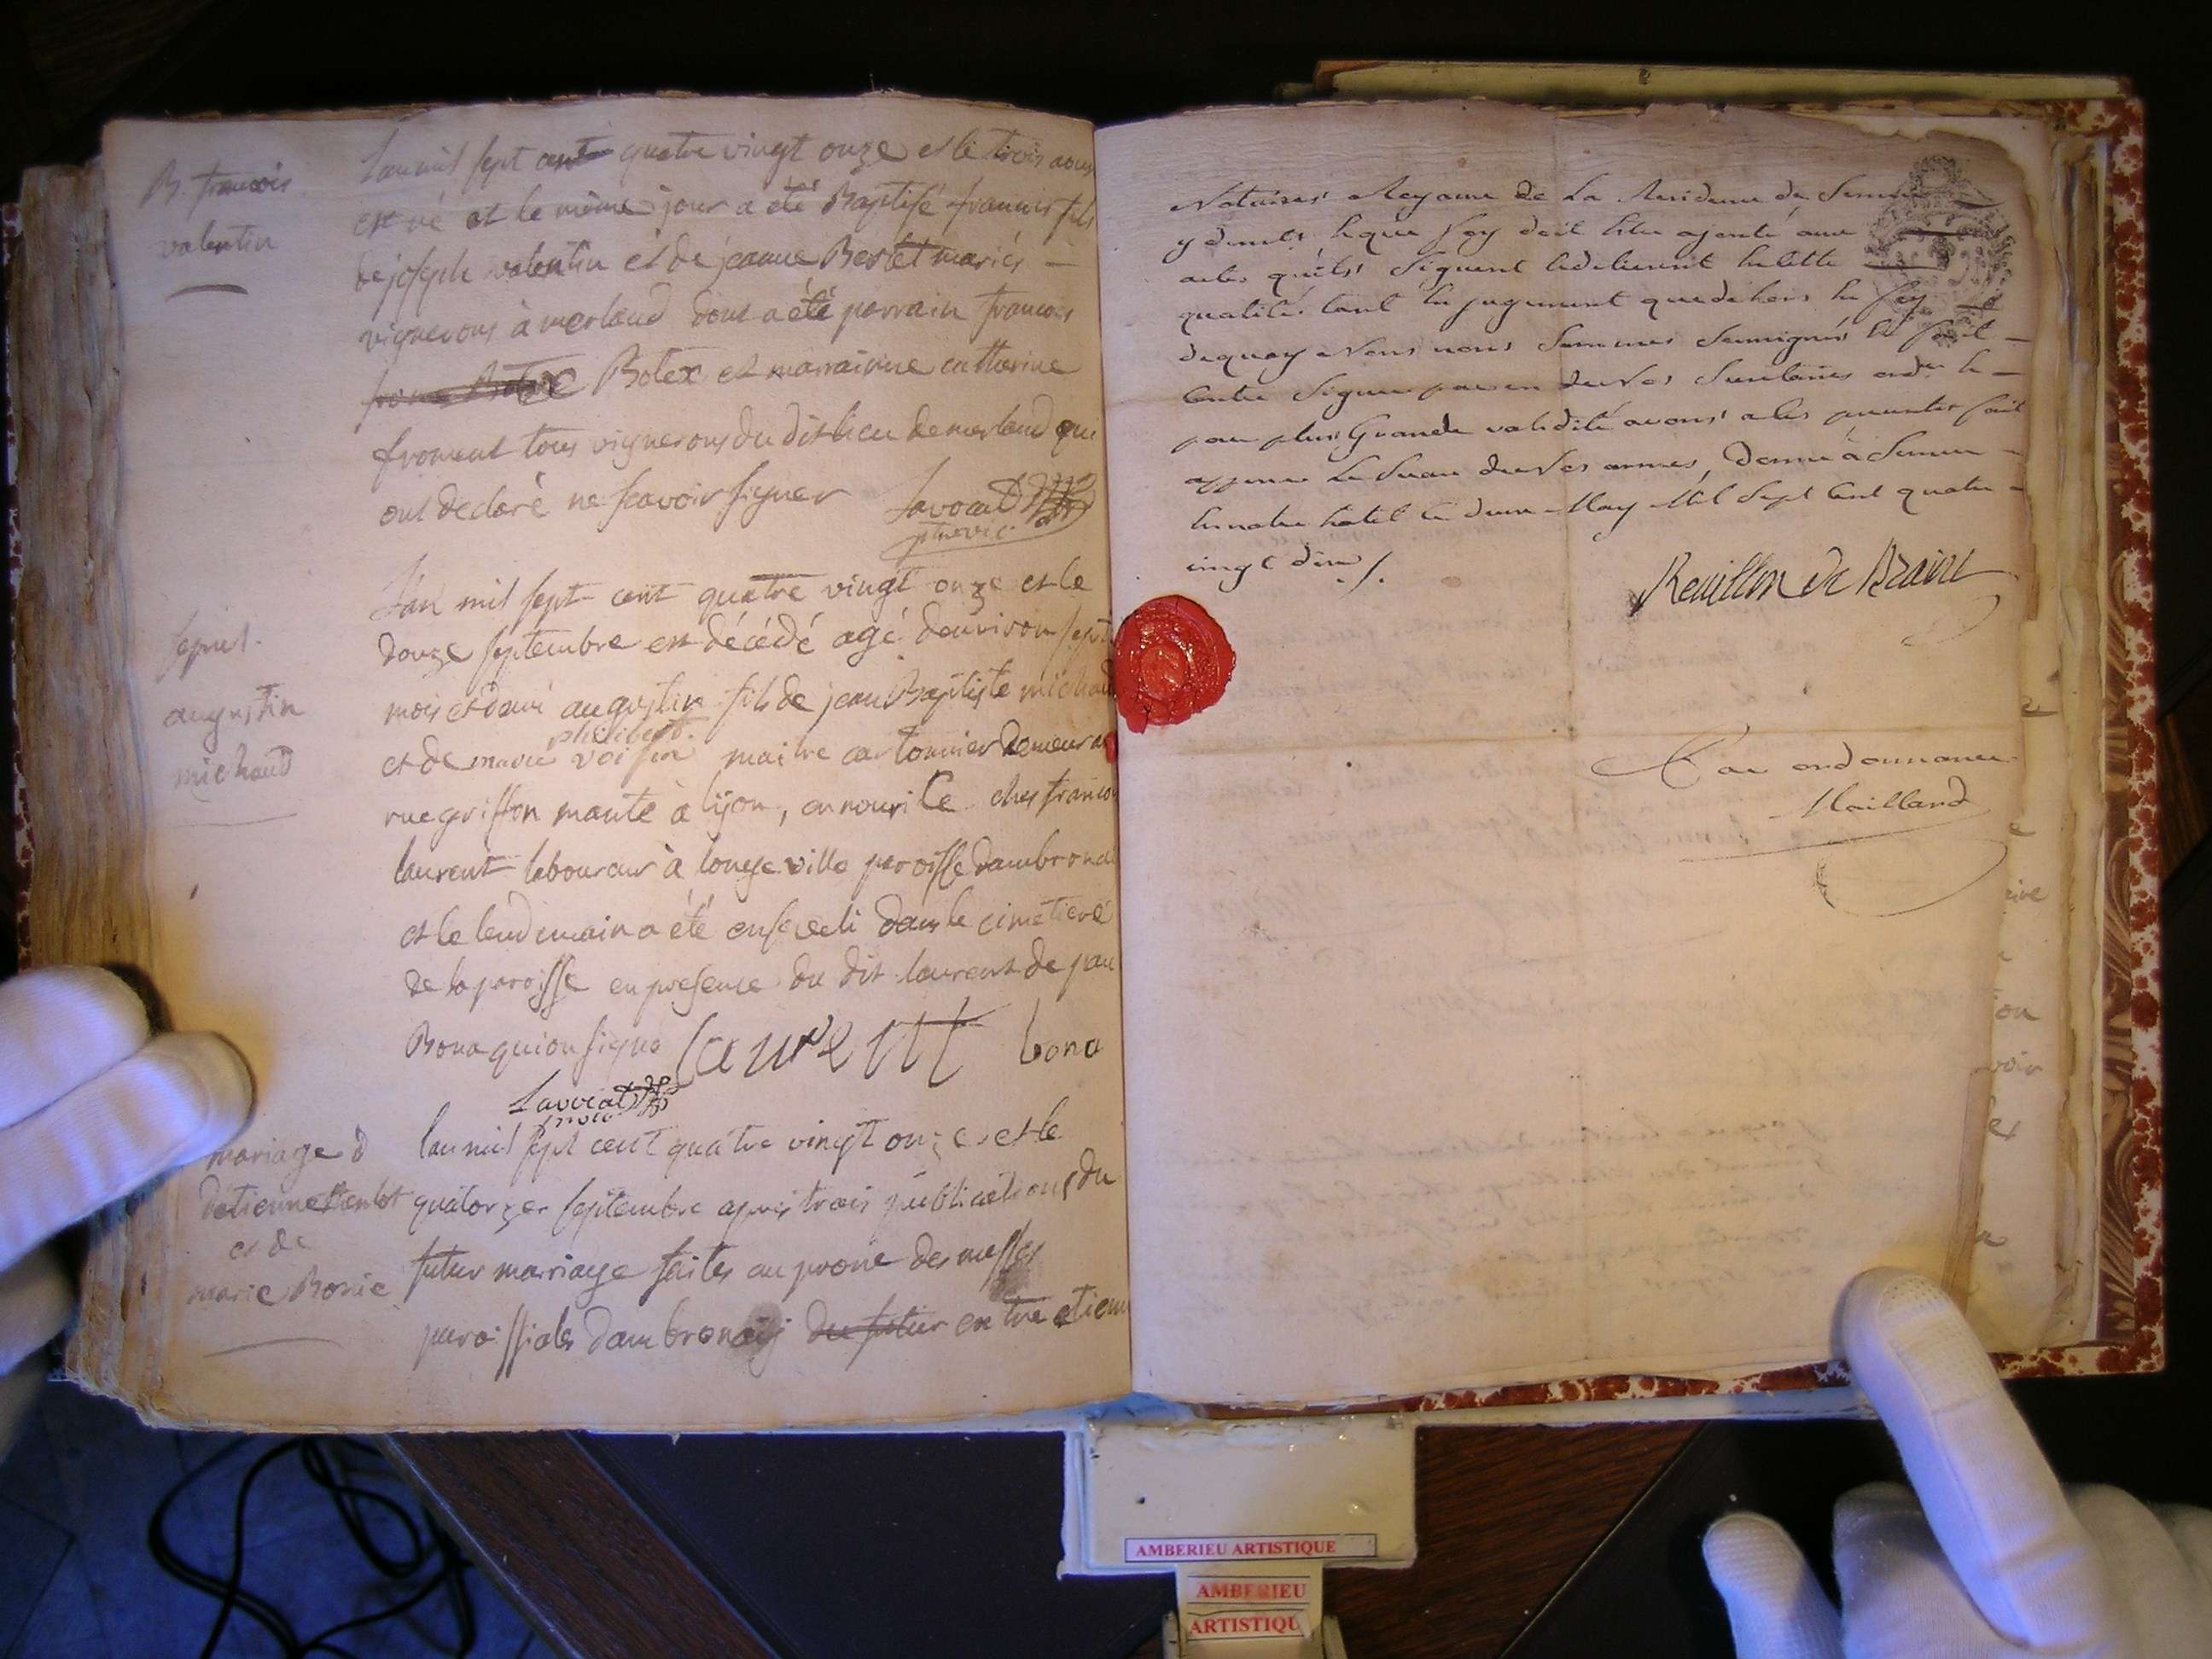 B. francois
valentin
L'an mil sept cent quatre vingt onze et le trois aous
est né et le même jour a été Baptisé francois fils
de joseph valentin et de jeanne Bestet mariés
vignerons à merland dont a été parrain francois
Botex et marrainne catherine
froment tous vignerons du dit lieu de merland qui
ont declaré ne scavoir signer Lavocat
sepult.
augustin
michaud
L'an mil sept cent quatre vingt onze et le
douze septembre est décédé agé denviron sept
mois et demi augustin fils de jean Baptiste michaud
philibert
et de marie voisin maitre cartonnier demeurant
rue griffon manté à lyon, en nourice ches francois
laurent laboureur à longeville paroisse dambronai
et le lendemain a été enseveli dans le cimetiere
de la paroisse en presence du dit laurent de jau
Bona qui on signé laurent bona
Lavocat
mariage d
détienne tenbot
et de
marie Bonie
lan mil sept cent quatre vingt onze et le
quatorzer septembre apres trois publications du
futur marriage faites au prone des messes
paroissiales dambronaij du futur entre etienne
Notaires Royaux de La Residence de
y qu'elle foy doit être ajouté aux
actes qu'ils signent
qualité tant en jugement que dehors en foy
dequoy Nous nous sommes soussignés et fait
contre signer par un de Nos Secretaires
pour plus Grande validité avons a les presentes fait
apposer Le Sceau de Nos armes, Donné à
en notre hotel le May Mil Sept Cent quatre
vingt dix /.
Reuillon de Braint
Par ordonnance
Mailland
AMBERIEU ARTISTIQUE
AMBERIEU
ARTISTIQU